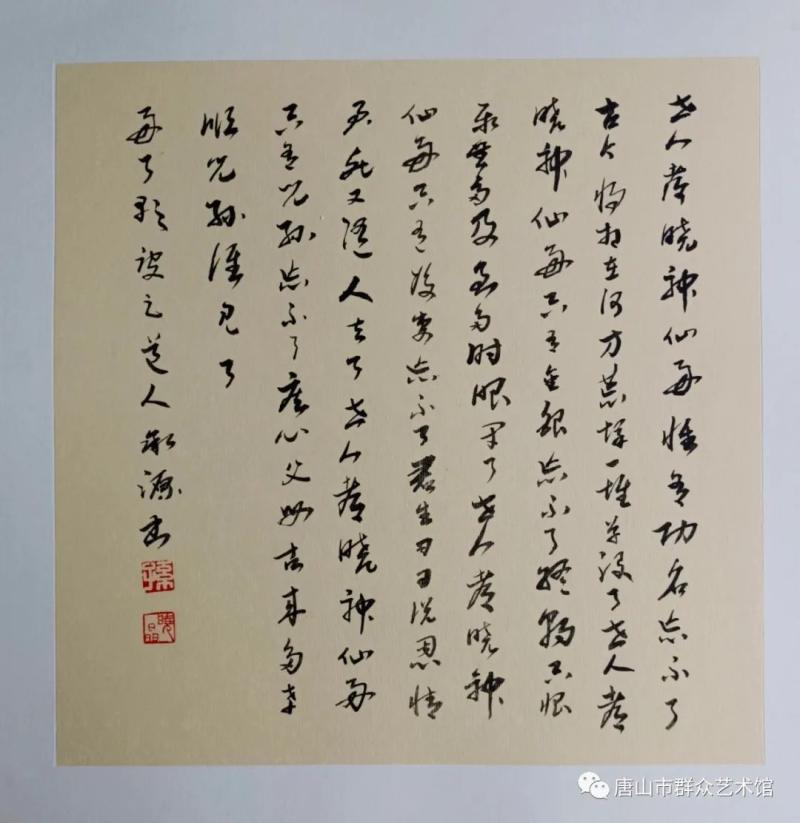 世人都晓神仙好惟有功名忘不了
古今将相在何方荒塚一堆草没了世人都
晓神仙好只有金银忘不了终朝只恨
聚無多及到多时眼闭了世人都晓神
仙好只有姣妻忘不了君生日日说恩情
君死又随人去了世人都晓神仙好
只有儿孙忘不了痴心父母古来多孝
顺儿孙谁见了
好了歌 跛足道人 源书
唐山市群众艺术馆